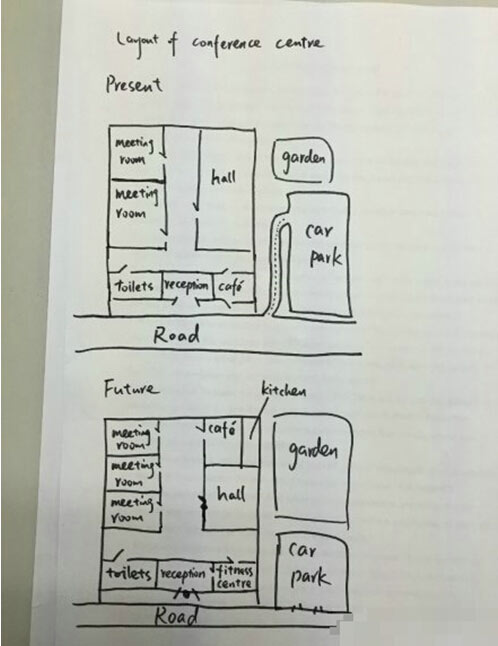 Layout of conference centre
Present
meeting
room
meeting
room
hall
garden
car
park
toilets
reception
café
Road
Future
kitchen
meeting
room
meeting
room
meeting
room
café
hall
garden
car
park
toilets
reception
fitness
centre
Road